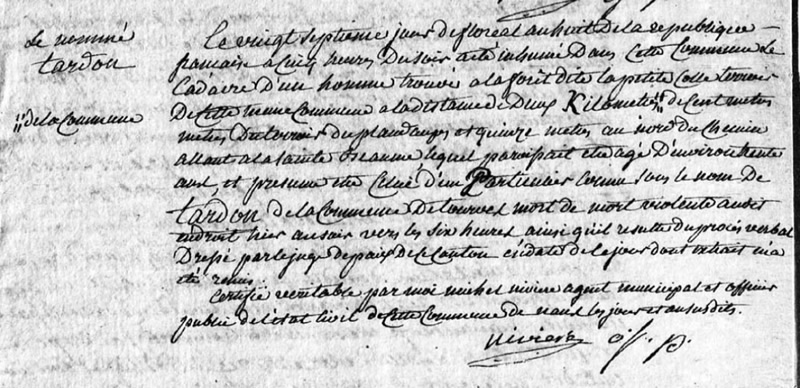 le nommé
tardon
"de la Commune
Le vingt septieme jour de floreal an huit de la republique
francaise a cinq heures du soir a été inhumé dans cette Commune le
Cadavre d'un homme trouvé a la forêt dite la petite Colle terroir
de cette meme Commune a la distance de deux Kilometres " de Cent metres
metres du terroir du plandaups et quinze metres au nord du Chemin
allant a la sainte Beaume lequel paroissait être agé d'environ trente
ans, et presumé etre Celui d'un Particulier Connu sous le nom de
tardon de la Commune de tourves mort de mort violente audit
endroit hier au soir vers les six heures ainsi qu'il resulte du procés verbal
Dressé par le juge de paix de ce Canton en date de ce jour dont extrait m'a
été remis.
Certifié veritable par moi michel niviere agent municipal et officier
public de l'etat Civil de cette Commune de nans les jour et an susdits.
niviere of. p.